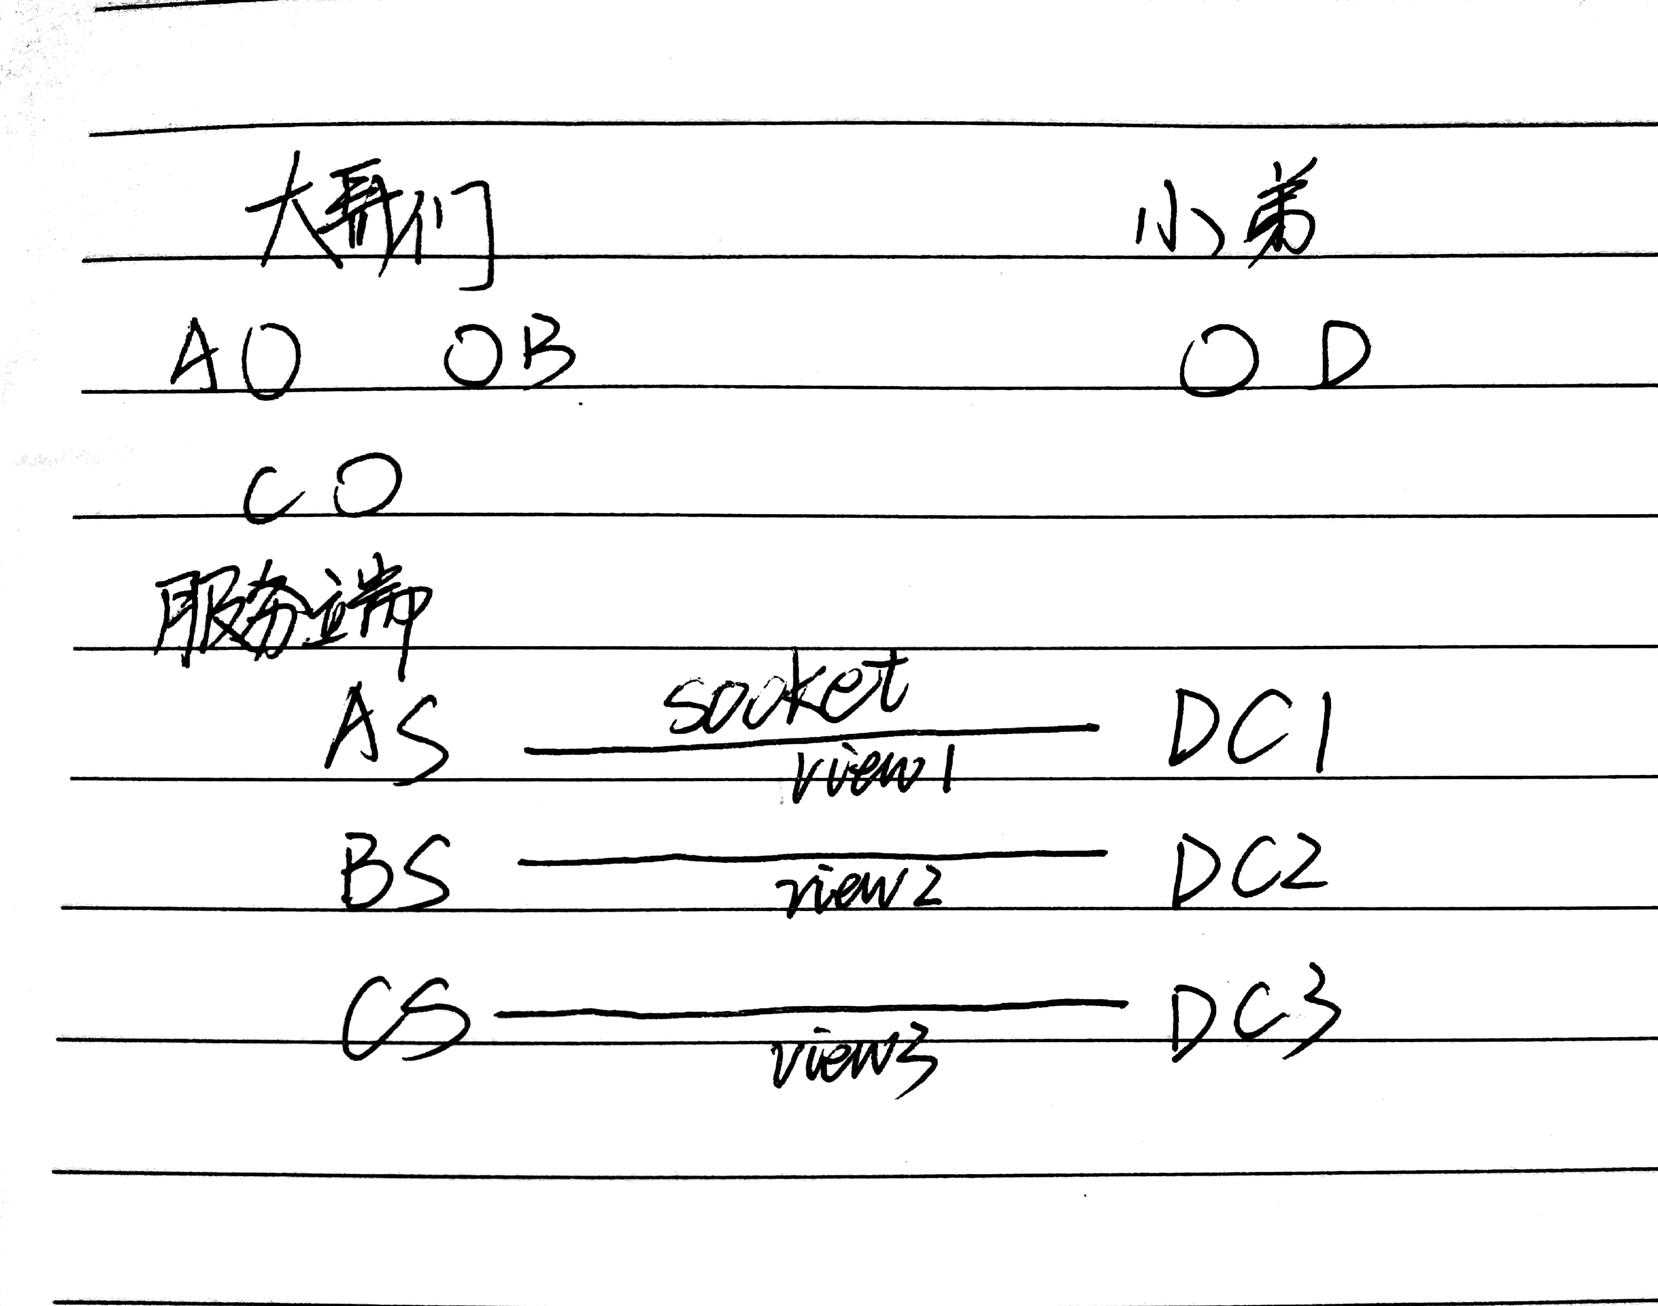 大哥们 小弟
A O O B O D
C O
服务端
AS socket DC1
view1
BS DC2
view2
CS DC3
view3